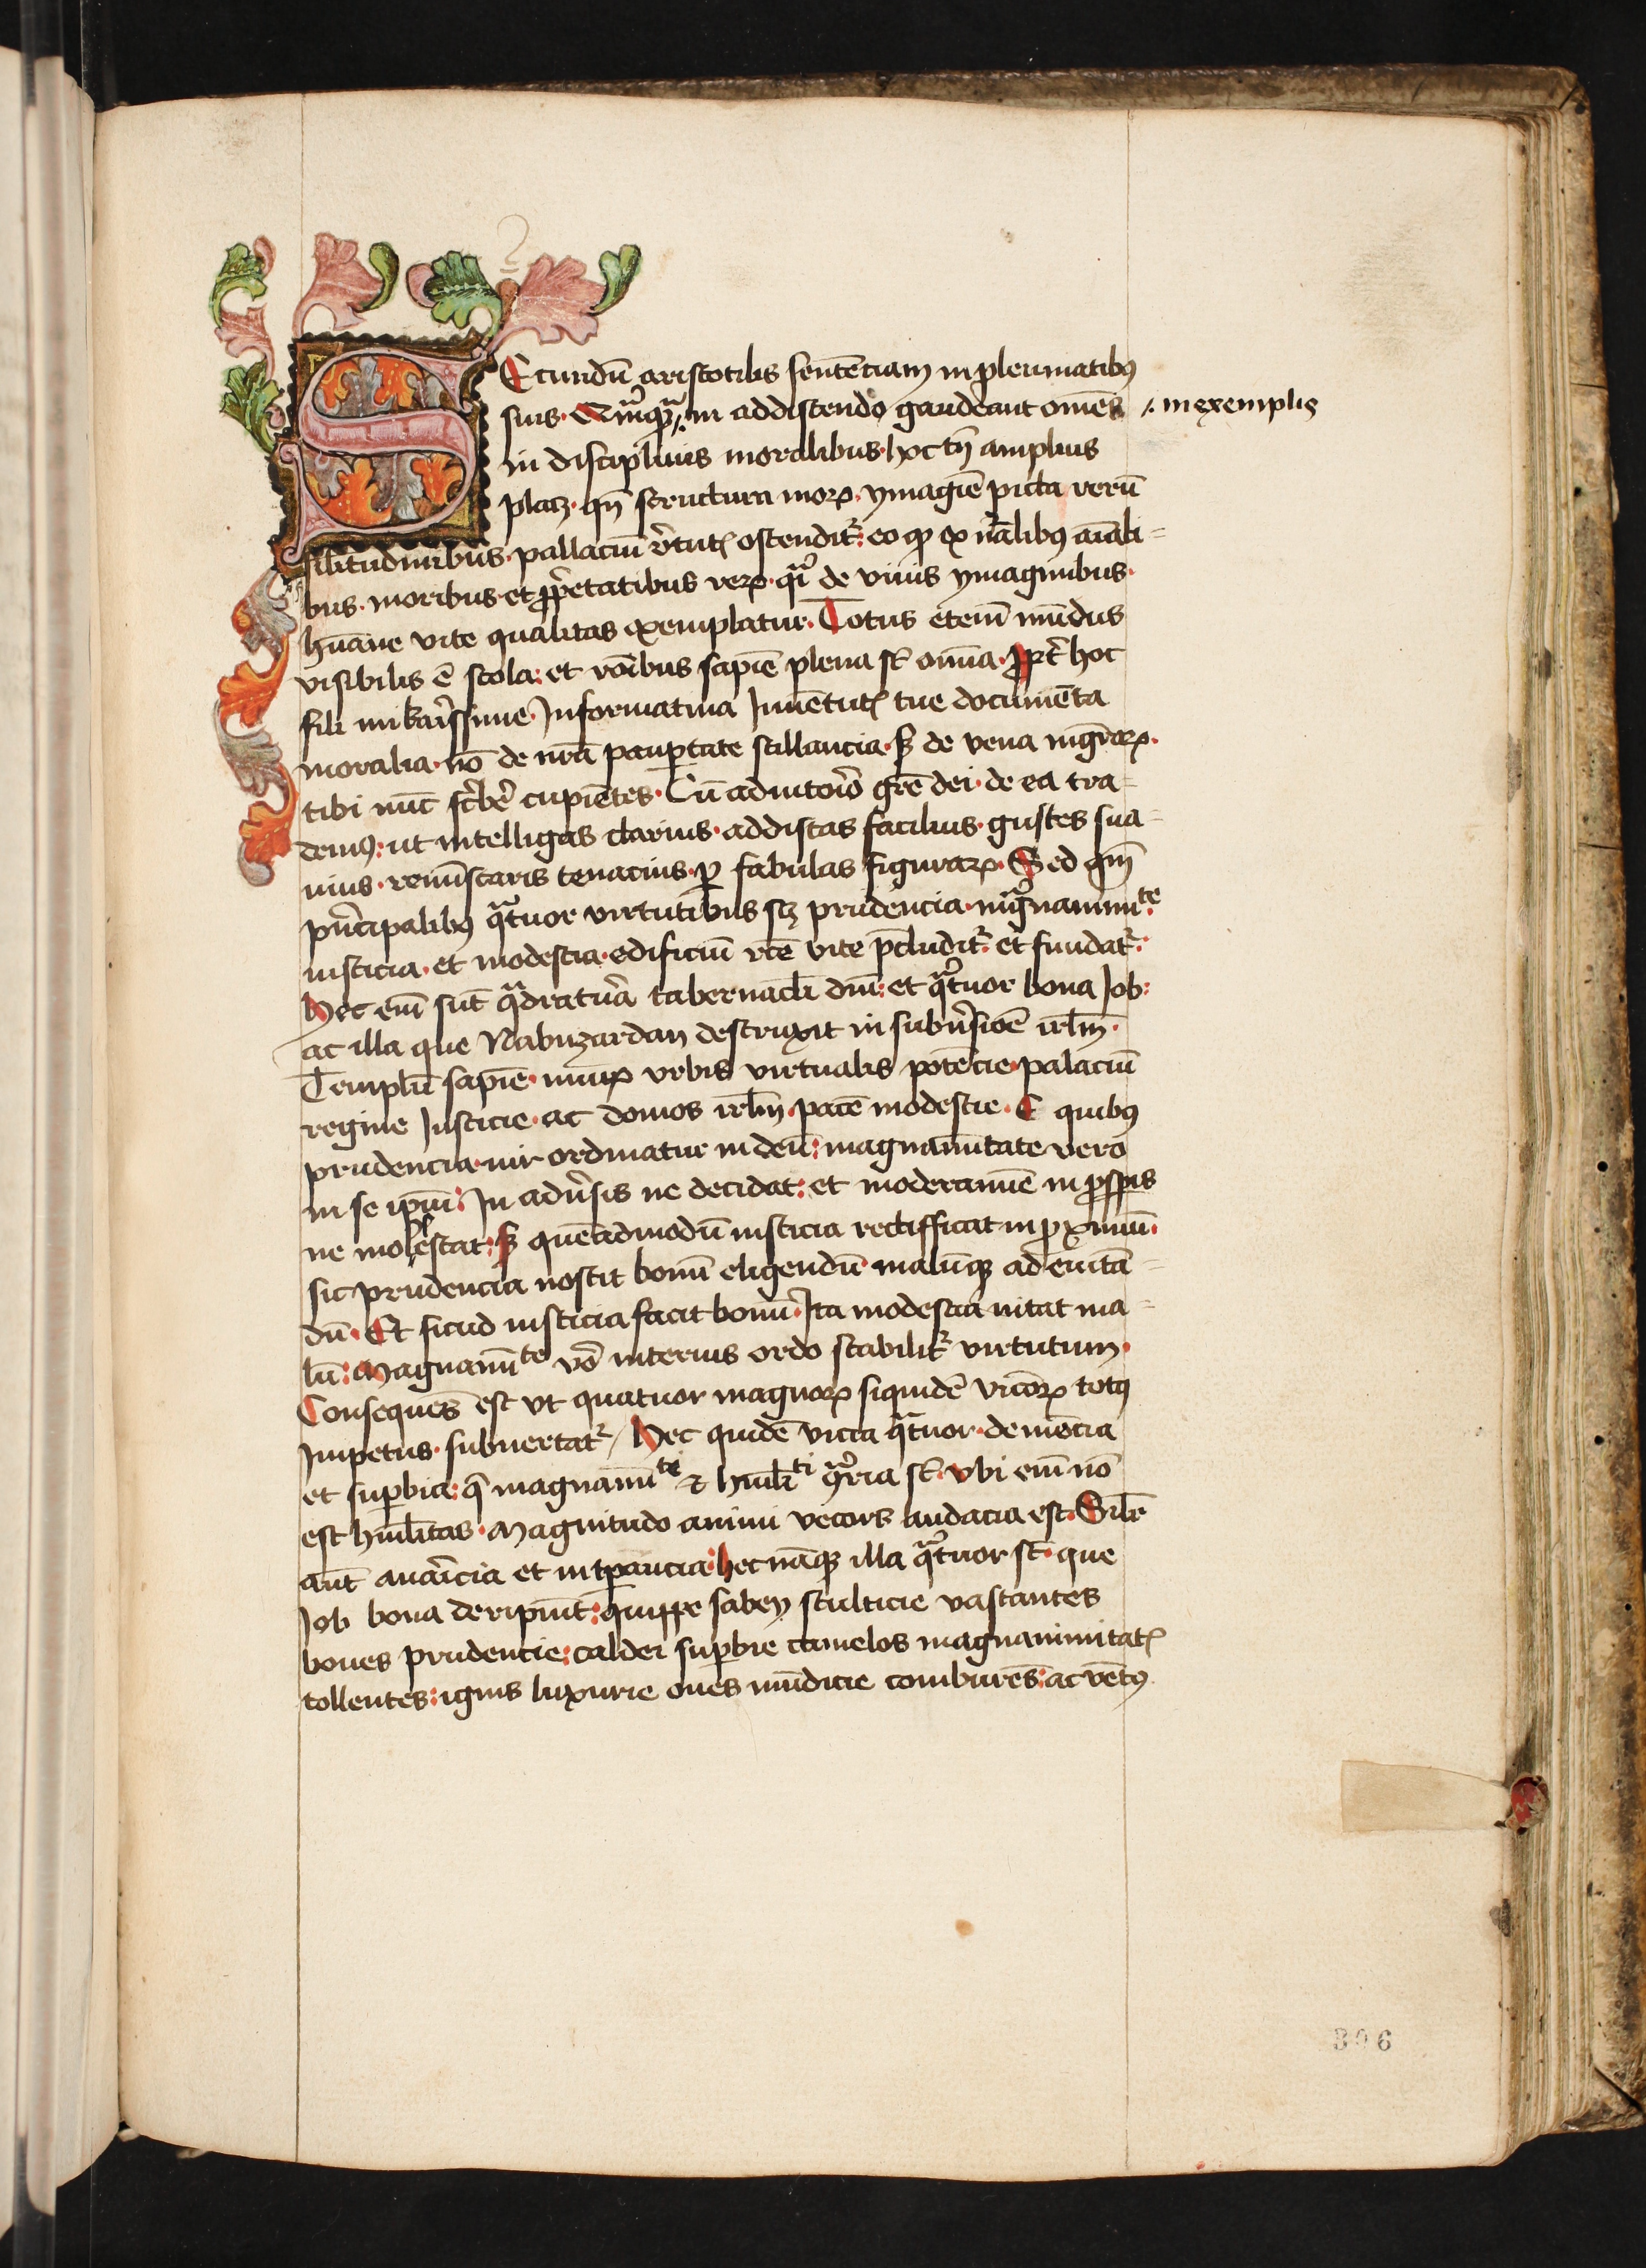 SEcundū aristotilis sentēciam in pleumatibꝰ
suis · Quāqᷓ in addiscendo gaudeant om̄es ⁒ in exemplis
in disciplinis moralibus · hoc tn̄ amplius
placꝫ · qn̄ structura moꝝ · ymagīe picta rerū
silitudinibus · pallaciū v̓tutꝭ ostendit᷑: eo ꝙ ex nālibꝰ aīali-
bus · moribus · et ꝓp̓etatibus reꝝ · qͣi de viuis ymaginibus ·
hūane vite qualitas exemplatur. Totus eteni᷑ mūdus
visibilis ē scola: et rōibus sapiē plena st̄ omīa. Ꝓpt̓ hoc
fili mi kar̓issime · Informatiua Iuuētutꝭ tue documēta
moralia · nō de nr̄a paup̱tate stillancia · sꝫ de vena mgr̄oꝝ ·
tibi nūc sc̓ber̓ cupiētes · Cū adiutor̓io gr̄e dei · de ea tra-
demꝰ: ut intelligas clarius · addiscas facilius · gustes sua-
uius · reminīscaris tenacius · ꝑ fabulas figuraꝝ · Sed qm̄
pn̄cipalibꝰ qͣtuor virtutibus scꝫ prudencia · magͣnanimiᵗᵉ ·
iusticia · et modestia · edificiū rc̄e vite p̄cludit᷑ · et fundat᷑:
Hec em̄ sūt qͣdratur̓a tabernacl̄i dm̄: et qͣtuor bona Job:
ac illa que Nabuzardan destruxit in subūsiōe irl̄m ·
Templū sapīe · muꝝ vrbis virtualis potēcie · palaciū
regine Iusticie · ac domos irl̄m · pacē modestie · E quibꝰ
prudencia · uir ordinatur in deū: magnanimītate vero
in se ip̄m: In adūsis ne decidat: et moderamīe in ꝓsꝑis
ne molestat: sꝫ quēadmodū iusticia rectifficat in ꝓximū ·
sic prudencia noscit bonū eligendū malūqꝫ ad euitā-
dū · Et sicud iusticia facit bonū · Ita modestia uitat ma-
lū: Magnanīmiᵗᵉ vō interius ordo stabilit᷑ virtutum ·
Consequēs est vt quatuor magnoꝝ siquidē vicioꝝ totꝰ
Impetus · subuertat᷑ / Hec quidē vicia qͣtuor · demēcia
et suꝑbia: q̄ magnanimiᵗⁱ ⁊ humil̄iᵗⁱ ꝯͣria st̄ · vbi em̄ nō
est humil̄itas · Magnitudo animi vecors audacia est · Sil̄r
aūt auar̓icia et intꝑancia: hec nāqꝫ illa qͣtuor st̄ · que
Job bona deripiūt: quippe sabey stulticie vastantes
boues prudencie: caldei suꝑbie camelos magnanimitatꝭ
tollentes: ignis luxurie oues mūdicie comburēs: ac vētꝰ
306